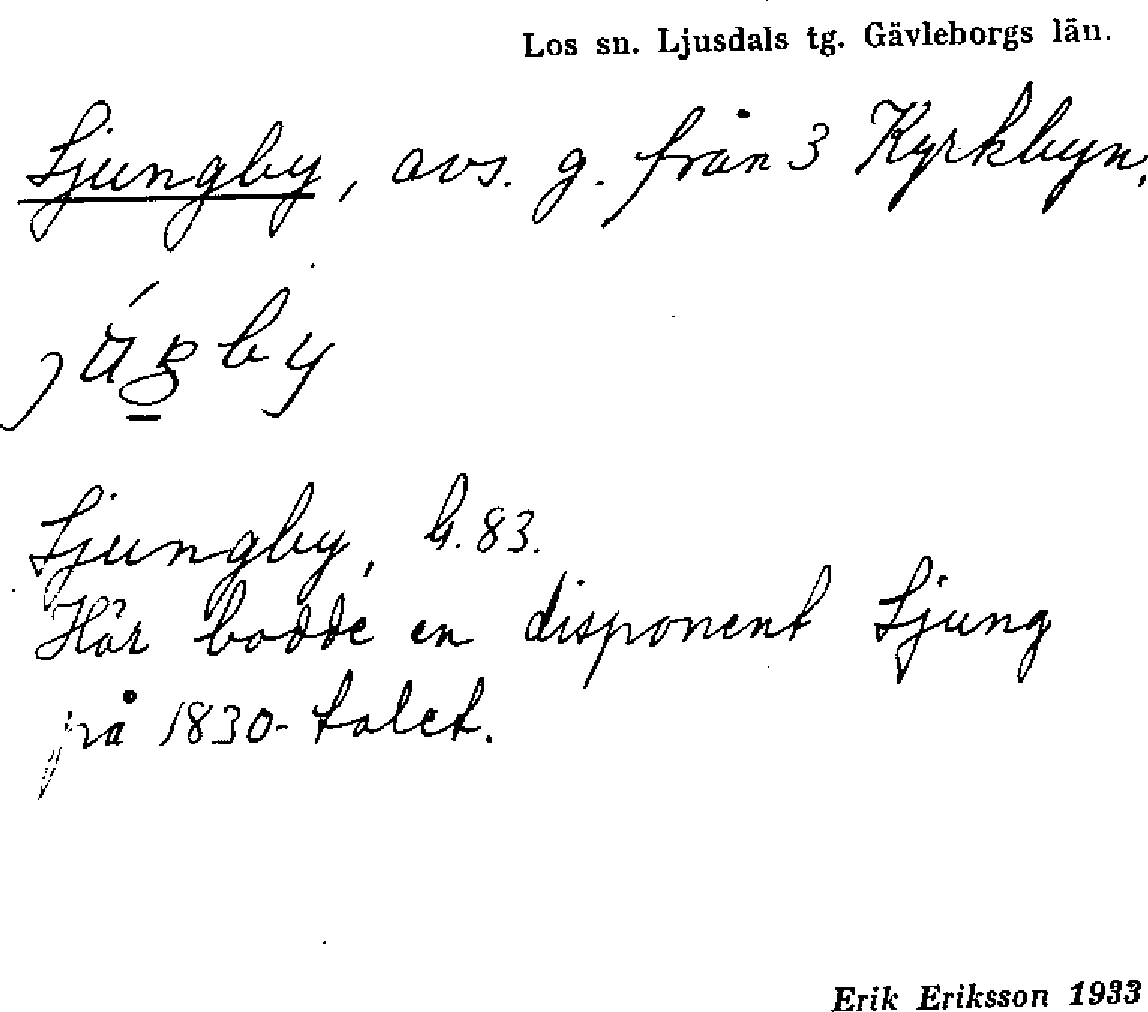 Los sn. Ljusdals tg. Gävleborgs län.
Ljungby, avs. g. från 3 Kyrkbyn.
Ljungby, G. 83.
Här bodde en disponent Ljung
på 1830-talet.
Erik Eriksson 1933